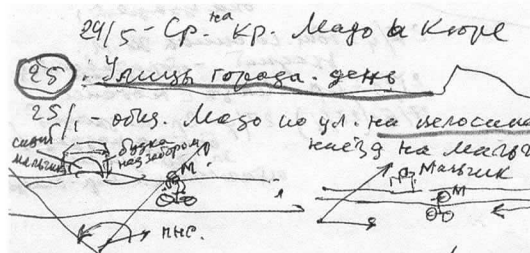 24/5 - Ср. на кр. Мадо и Кюре
25. Улицы города. день
25/1 - общ. Мадо по ул. на велосипе
наезд на мальч
сидит мальчик
будка над забором
М
Мальчик
М
ПНС.